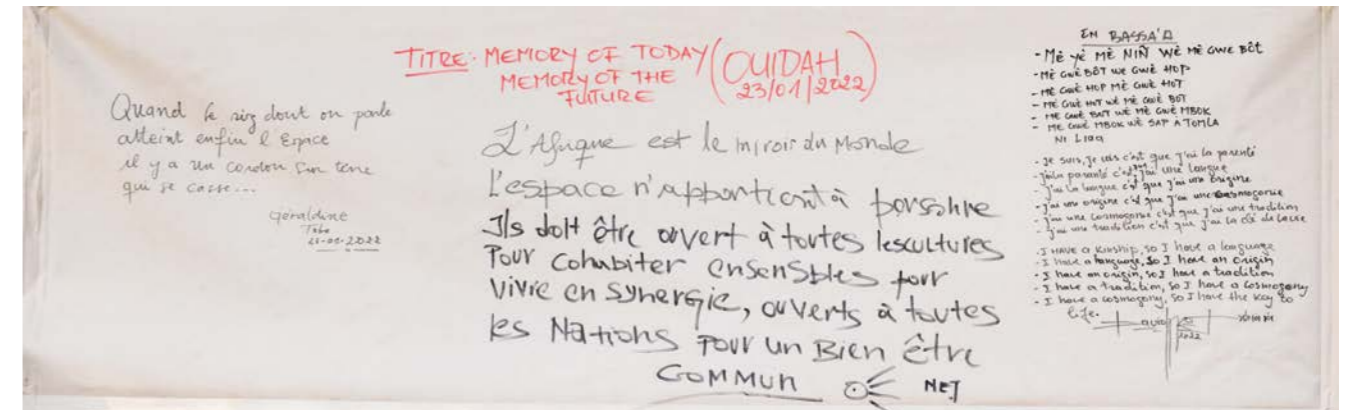 TITRE: MEMORY OF TODAY
MEMORY OF THE
FUTURE
(OUIDAH
23/01/2022)
Quand le riz dont on parle
atteint enfin l'Espace
il y a un cordon sur terre
qui se casse...
Géraldine
Tobe
2022
L'Afrique est le miroir du Monde
L'espace n'appartient à personne
Ils doit être ouvert à toutes les cultures
Pour cohabiter ensensbles pour
vivre en synergie, ouverts à toutes
les Nations Pour un Bien être
Commun NET
EN BASSA'A
- Mè yé MÈ NIÑ WÈ MÈ GWE BÔT
- MÈ GWÈ BÔT WE GWÈ HOP
- MÈ GWÈ HOP MÈ GWÈ HOT
- MÈ GWÈ HOT WÈ MÈ GWÈ BOT
- MÈ GWÈ WÈ MÈ GWÈ MBOK
- MÈ GWÈ MBOK WÈ SAP A TOMLA
NI
- Je suis, je vis c'est que j'ai la parenté
- j'ai la parenté c'est que j'ai une langue
- J'ai la langue c'est que j'ai une origine
- J'ai une origine c'est que j'ai une cosmogonie
- J'ai une cosmogonie c'est que j'ai une tradition
- J'ai une tradition c'est que j'ai la clé de la vie
- I HAVE a kinship, so I have a language
- I have a language, so I have an origin
- I have an origin, so I have a tradition
- I have a tradition, so I have a cosmogony
- I have a cosmogony, so I have the key to
life.
2022